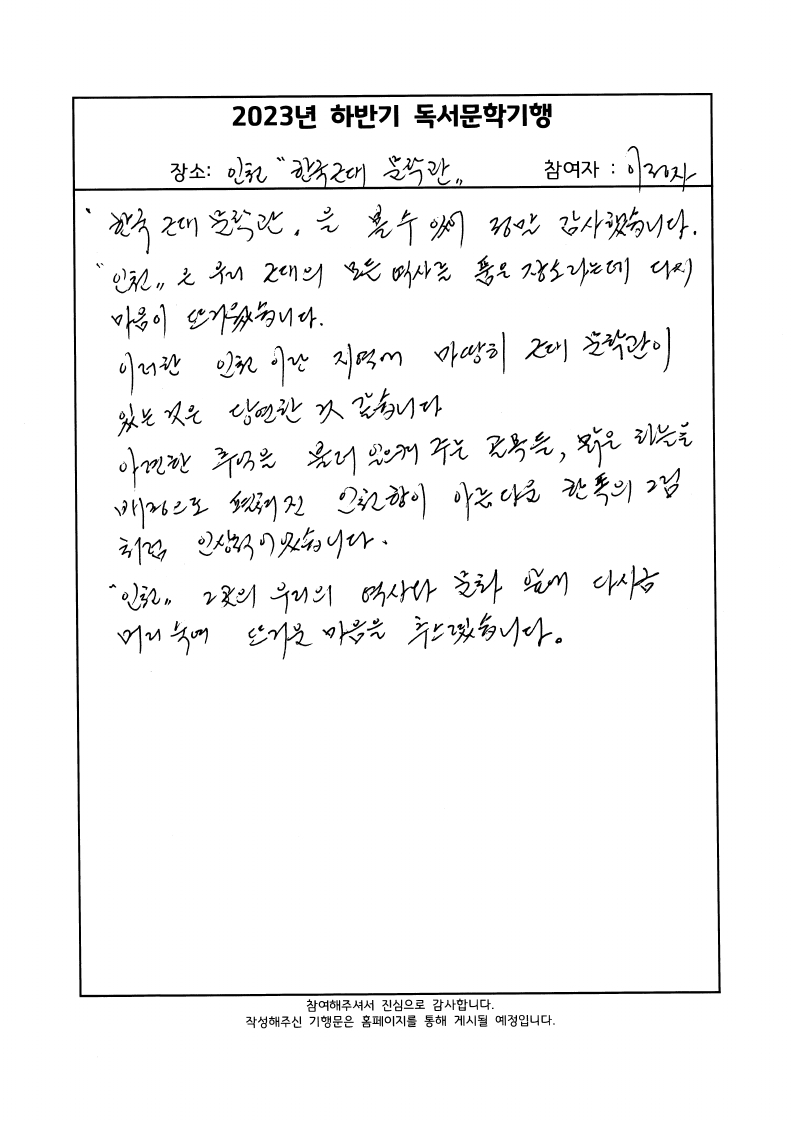 2023년 하반기 독서문학기행
장소: 인천 "한국근대 문학관" 참여자 : 이정자
'한국 근대 문학관'을 볼 수 있어 정말 감사했습니다.
"인천"은 우리 근대의 모든 역사를 품은 장소라는데 다시
마음이 뜨거웠습니다.
이러한 인천이란 지역에 마땅히 근대 문학관이
있는 것은 당연한 것 같습니다
아련한 추억을 불러 일으켜 주는 골목들, 맑은 하늘을
배경으로 펼쳐진 인천항이 아름다운 한폭의 그림
처럼 인상적이었습니다.
"인천" 그곳의 우리의 역사와 문화 앞에 다시금
머리 숙여 뜨거운 마음을 추스렸습니다.
참여해주셔서 진심으로 감사합니다.
작성해주신 기행문은 홈페이지를 통해 게시될 예정입니다.